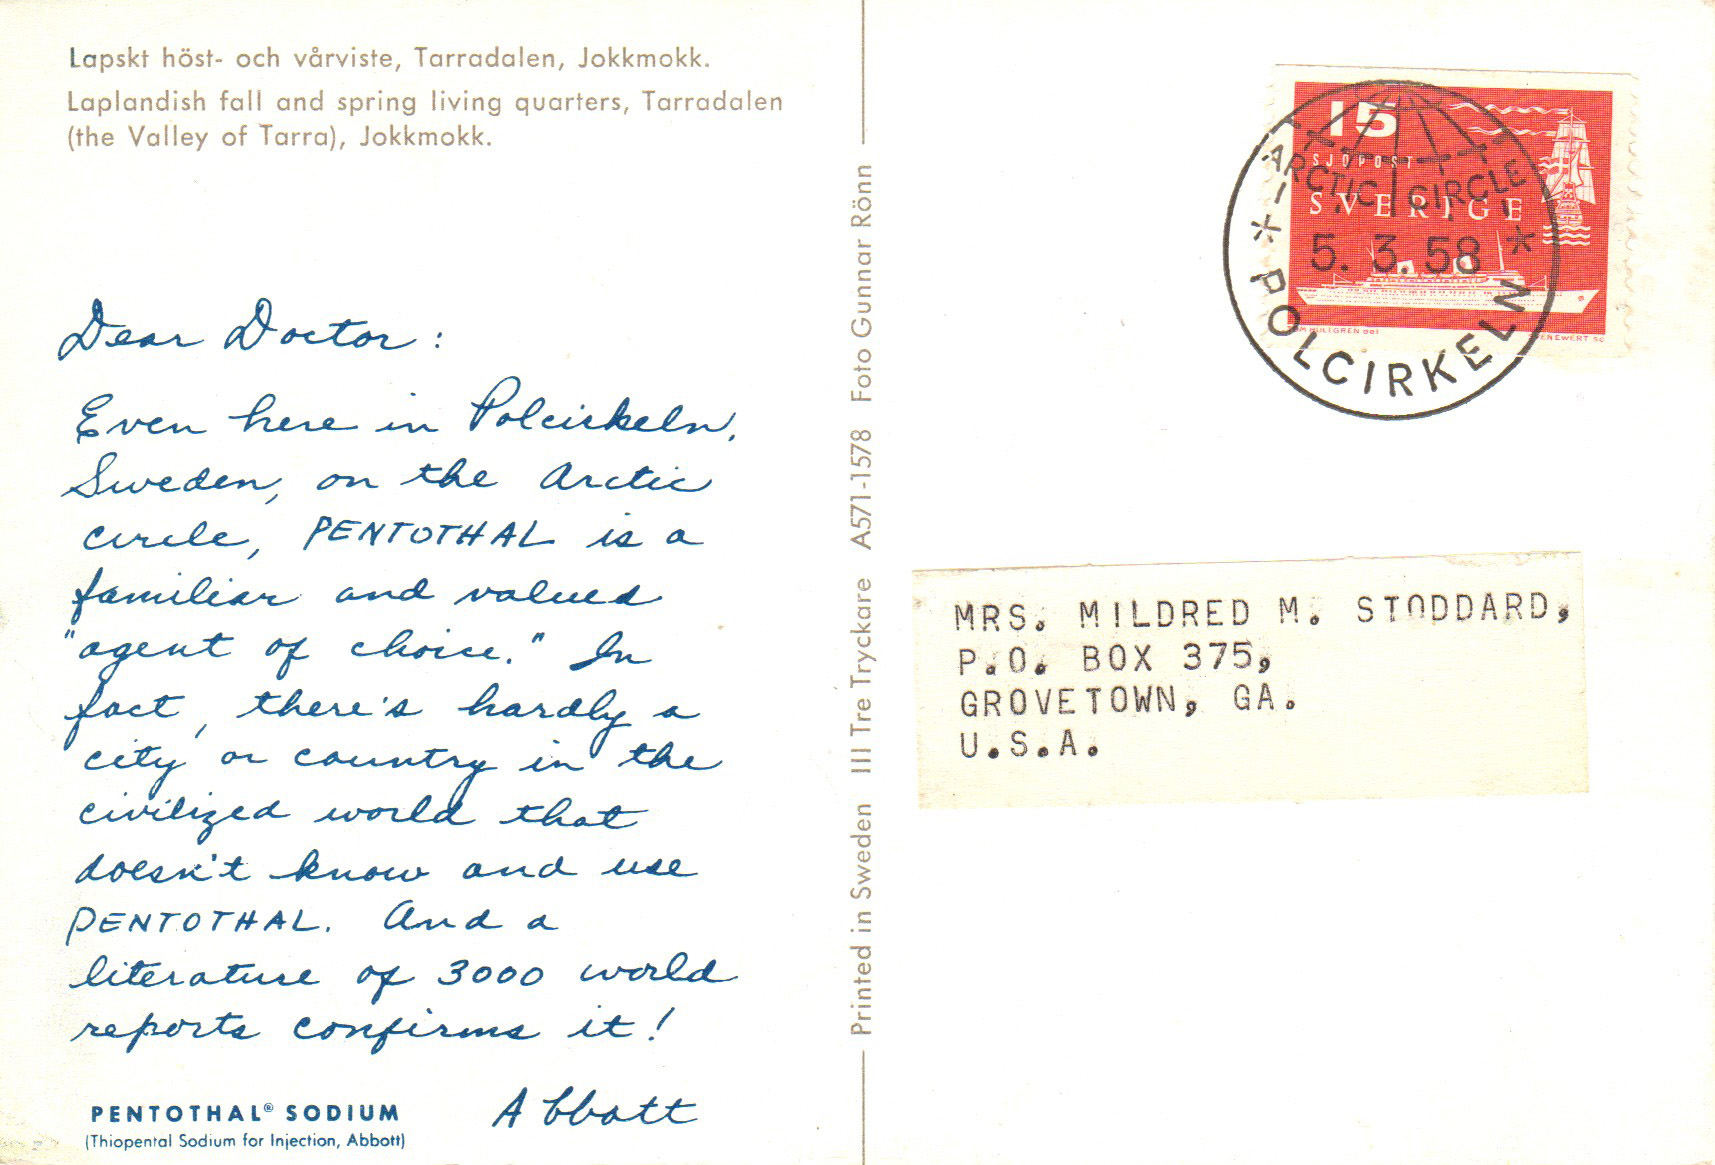 Lapskt höst- och vårviste, Tarradalen, Jokkmokk.
Laplandish fall and spring living quarters, Tarradalen
(the Valley of Tarra), Jokkmokk.
Dear Doctor:
Even here in Polcirkeln,
Sweden, on the Arctic
circle, PENTOTHAL is a
familiar and valued
"agent of choice." In
fact, there's hardly a
city or country in the
civilized world that
doesn't know and use
PENTOTHAL. And a
literature of 3000 world
reports confirms it!
Abbott
PENTOTHAL® SODIUM
(Thiopental Sodium for Injection, Abbott)
Printed in Sweden III Tre Tryckare A571-1578 Foto Gunnar Rönn
15
SJÖPOST
SVERIGE
HULTGREN del
EWERT SC
ARCTIC CIRCLE
5. 3. 58
* POLCIRKELN *
MRS. MILDRED M. STODDARD,
P.O. BOX 375,
GROVETOWN, GA.
U.S.A.